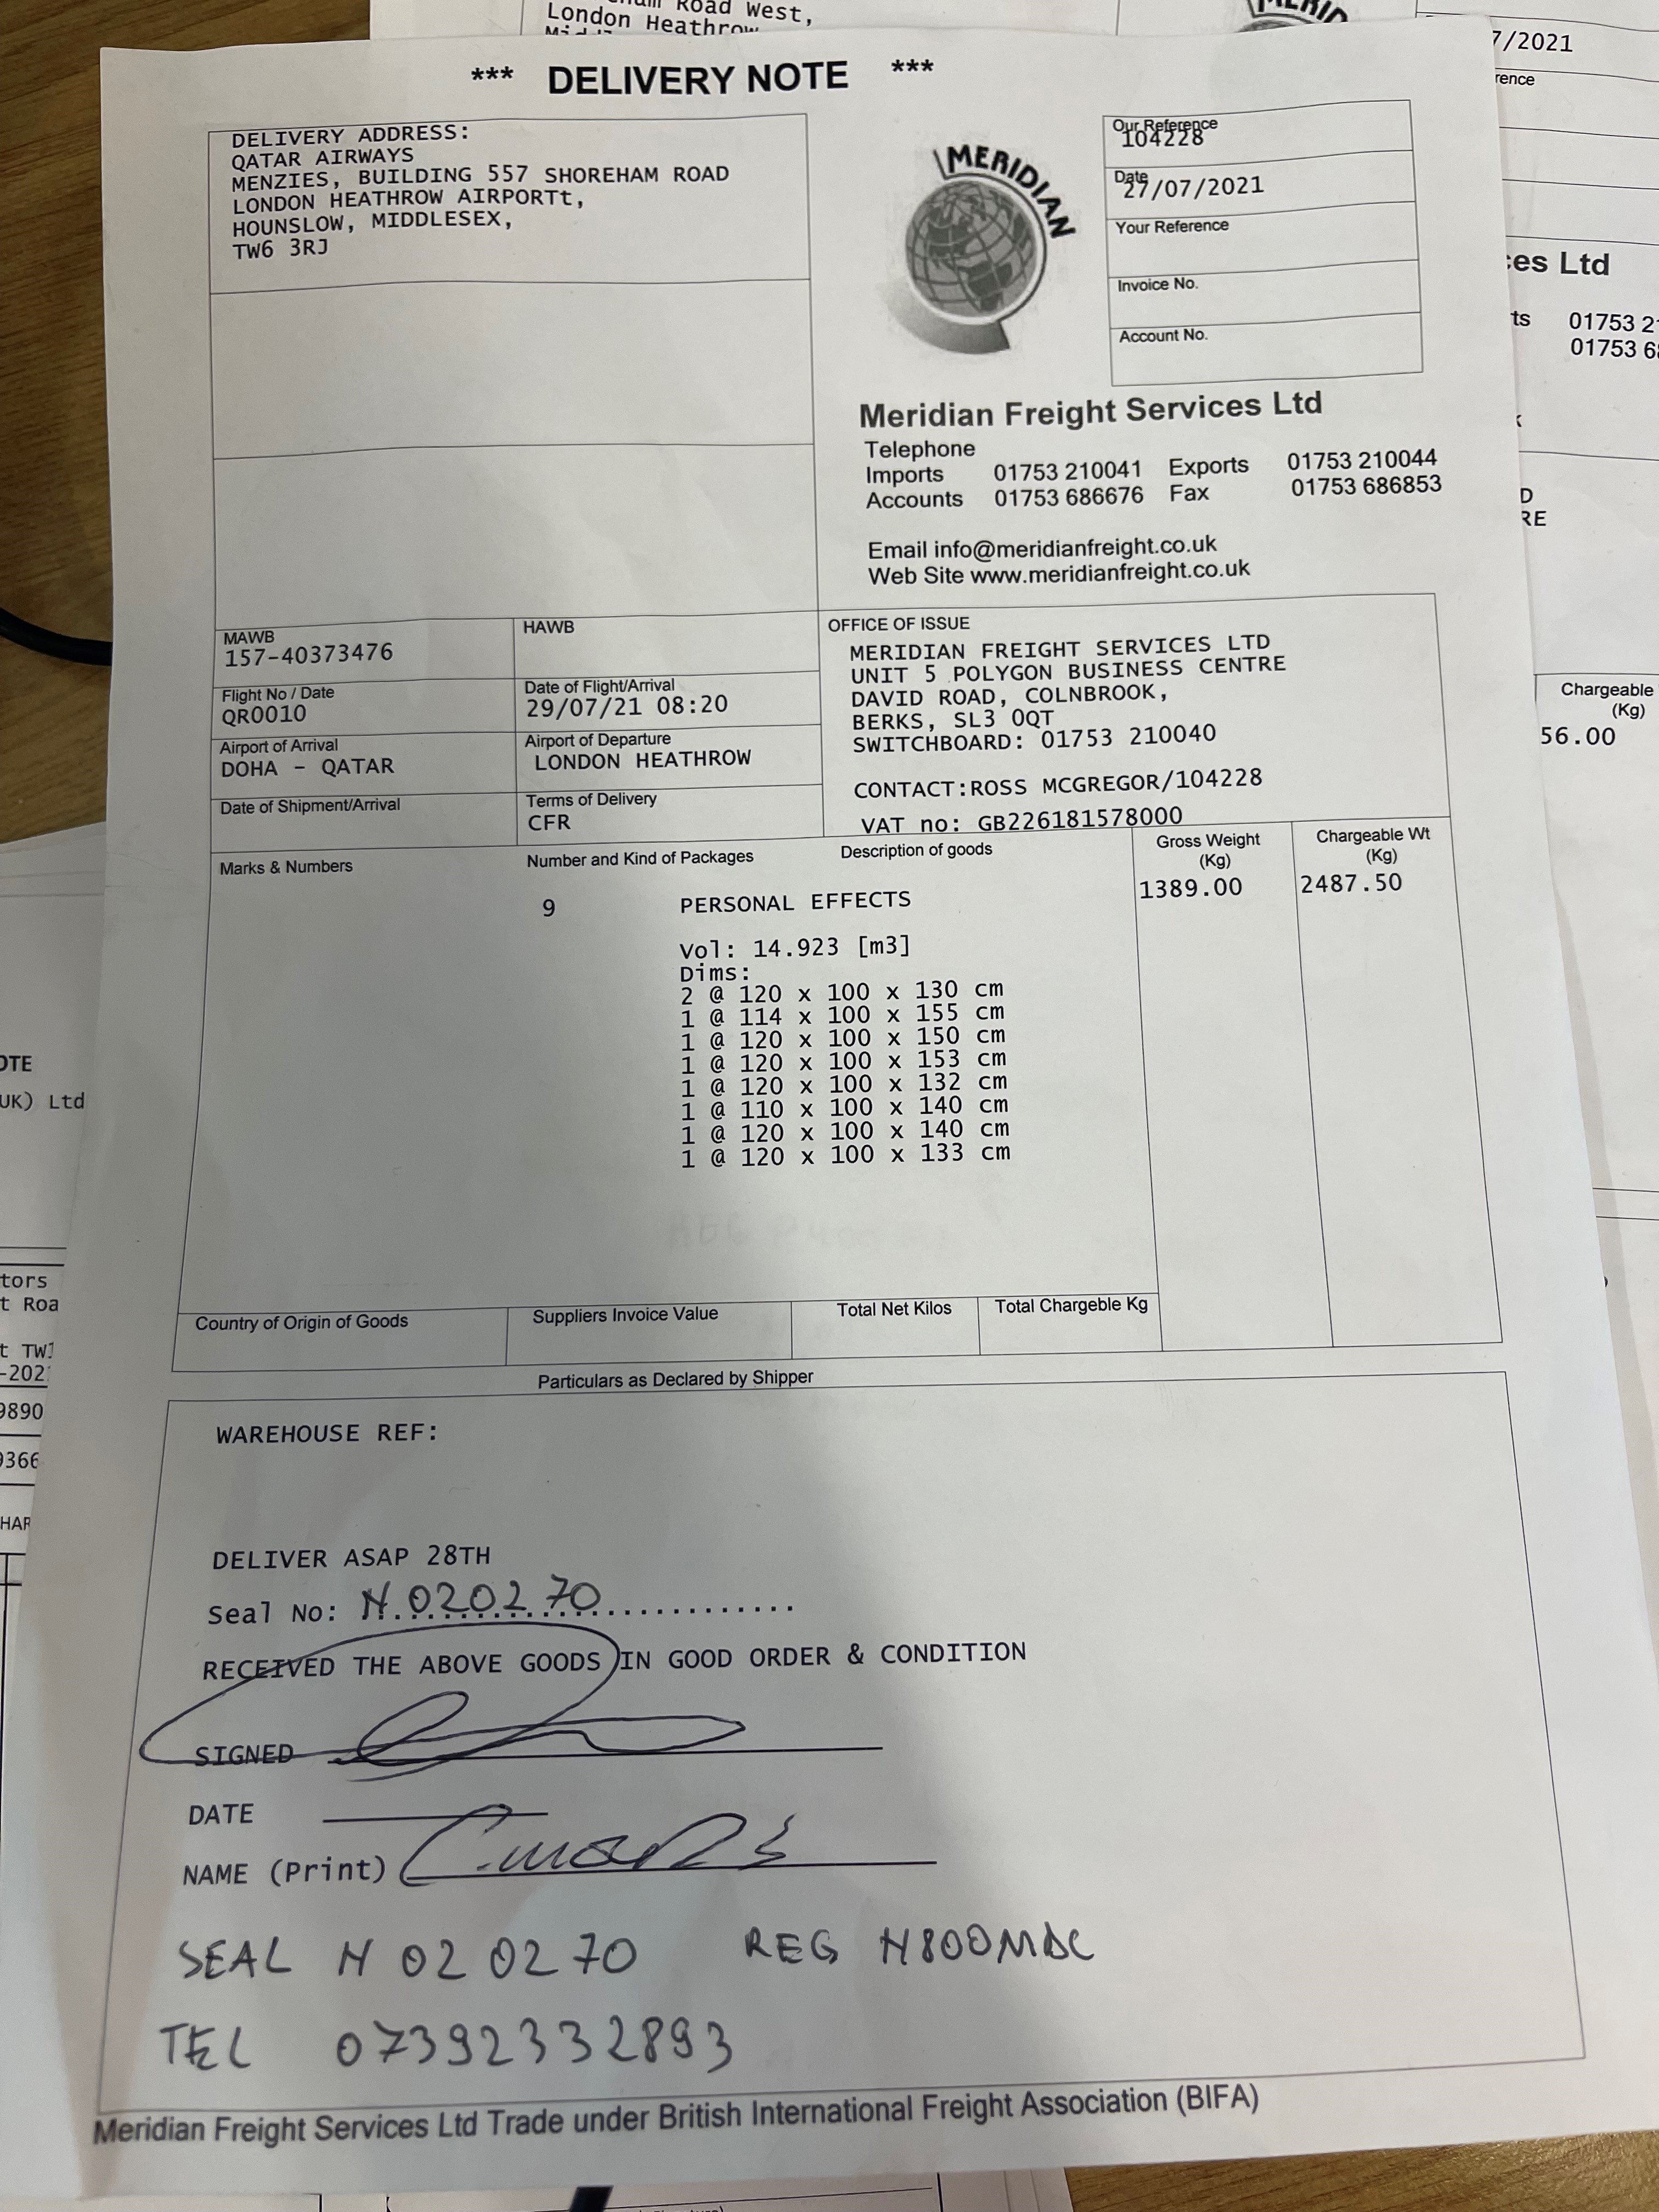 London Heathrow
*** DELIVERY NOTE ***
DELIVERY ADDRESS:
QATAR AIRWAYS
MENZIES, BUILDING 557 SHOREHAM ROAD
LONDON HEATHROW AIRPORTt,
HOUNSLOW, MIDDLESEX,
TW6 3RJ
MERIDIAN
Our Reference
104228
Date
27/07/2021
Your Reference
Invoice No.
Account No.
Meridian Freight Services Ltd
Telephone
Imports 01753 210041 Exports 01753 210044
Accounts 01753 686676 Fax 01753 686853
Email info@meridianfreight.co.uk
Web Site www.meridianfreight.co.uk
MAWB
157-40373476
HAWB
Flight No / Date
QR0010
Date of Flight/Arrival
29/07/21 08:20
Airport of Arrival
DOHA - QATAR
Airport of Departure
LONDON HEATHROW
Date of Shipment/Arrival
Terms of Delivery
CFR
OFFICE OF ISSUE
MERIDIAN FREIGHT SERVICES LTD
UNIT 5 POLYGON BUSINESS CENTRE
DAVID ROAD, COLNBROOK,
BERKS, SL3 0QT
SWITCHBOARD: 01753 210040
CONTACT:ROSS MCGREGOR/104228
VAT no: GB226181578000
Marks & Numbers Number and Kind of Packages Description of goods Gross Weight (Kg) Chargeable Wt (Kg)
9 PERSONAL EFFECTS 1389.00 2487.50
Vol: 14.923 [m3]
Dims:
2 @ 120 x 100 x 130 cm
1 @ 114 x 100 x 155 cm
1 @ 120 x 100 x 150 cm
1 @ 120 x 100 x 153 cm
1 @ 120 x 100 x 132 cm
1 @ 110 x 100 x 140 cm
1 @ 120 x 100 x 140 cm
1 @ 120 x 100 x 133 cm
Country of Origin of Goods Suppliers Invoice Value Total Net Kilos Total Chargeble Kg
Particulars as Declared by Shipper
WAREHOUSE REF:
DELIVER ASAP 28TH
Seal No: N 020270
RECEIVED THE ABOVE GOODS IN GOOD ORDER & CONDITION
SIGNED
DATE
NAME (Print)
SEAL N 020270 REG N800MDC
TEL 07392332893
Meridian Freight Services Ltd Trade under British International Freight Association (BIFA)
7/2021
Chargeable
(Kg)
56.00
UK) Ltd